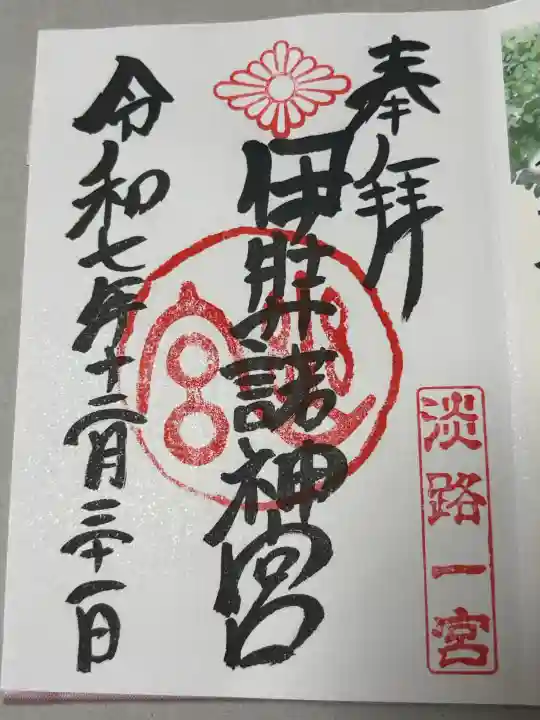 奉拝
淡路一宮
伊弉諾神宮
令和七年十二月三十一日